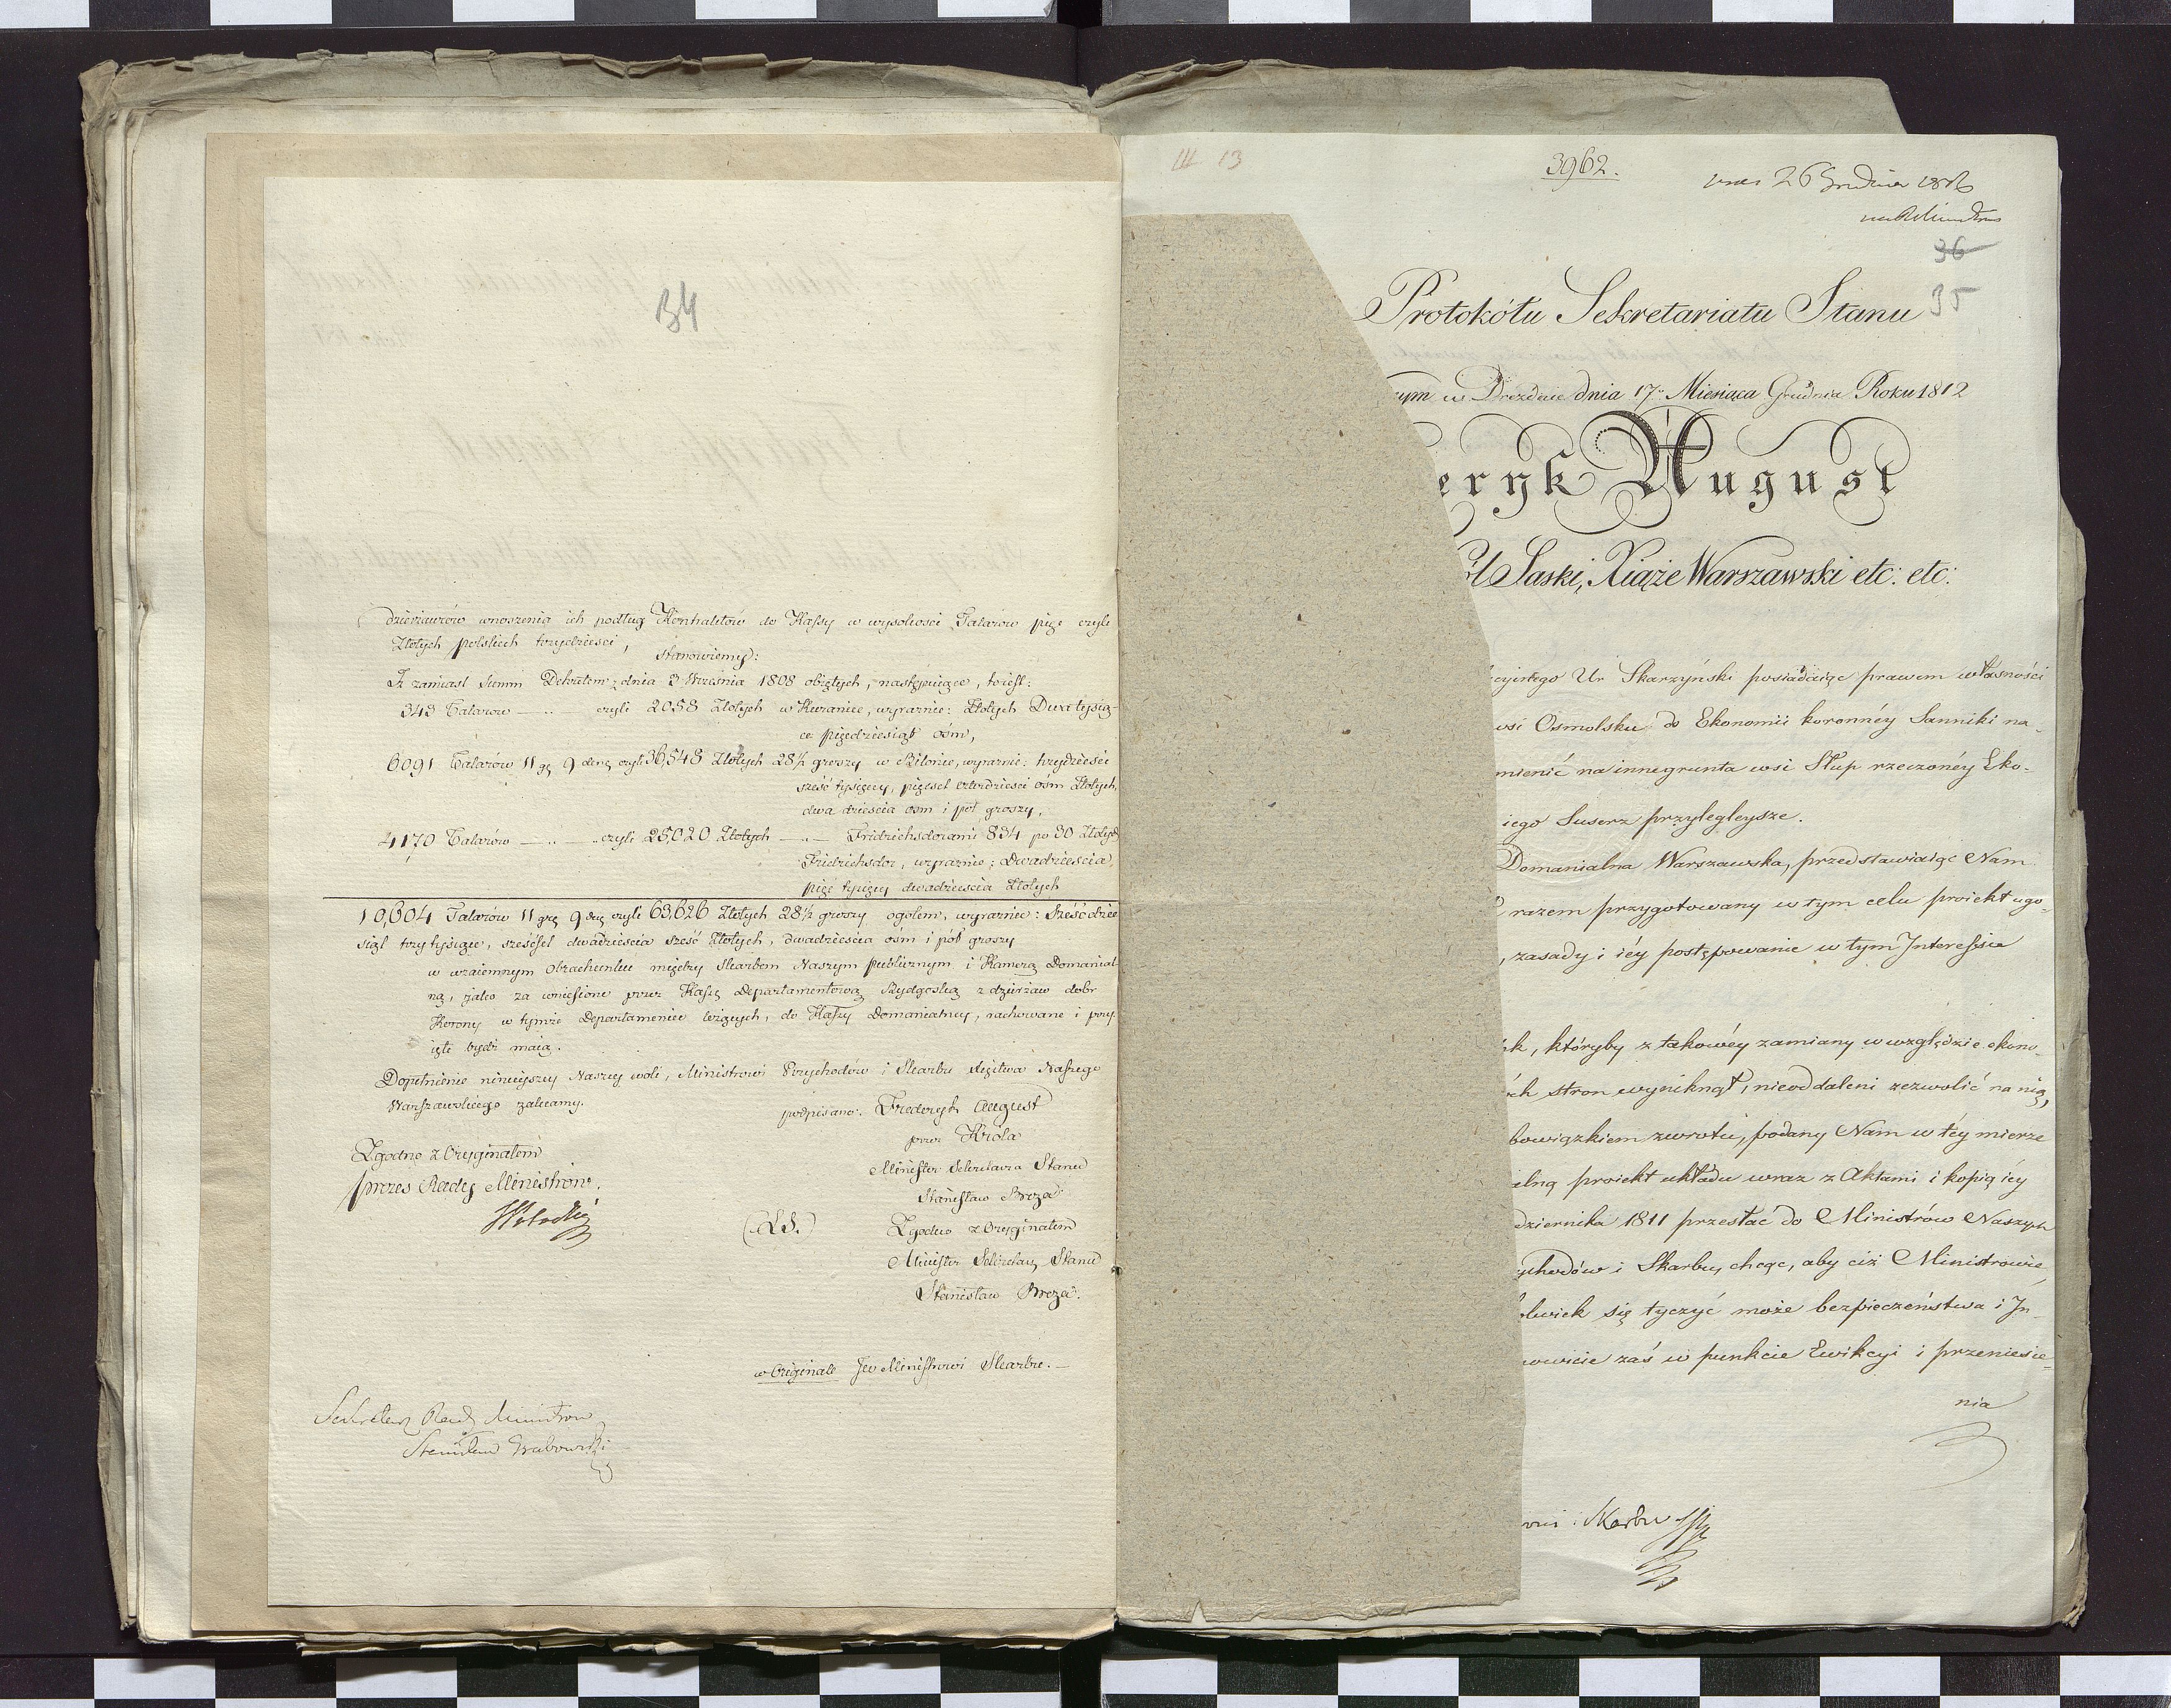 34
dzierzawców wnoszenia ich podług Kontraktów do Kassy w wysokosci Talarów pięc czyli
Złotych polskich trzydziesci, stanowiemy:
Iż zamiast Summ Dekretem z dnia 3 Września 1808 obiętych, następuiące, to iest:
343 Talarow — „ — czyli 2058 Złotych w Kurancie, wyraznie: Złotych Dwa tysią-
ce pięcdziesiąt ośm,
6091 Talarów 11 gg 9 den czyli 36,548 Złotych 28½ groszy w Bilonie, wyraznie: trzydzieści
sześć tysięcy, pięcset czterdziesci ośm Złotych
dwadziescia osm i pół groszy,
4170 Talarów — „ — czyli 25,020 Złotych — „ — Fridrichsdorami 834 po 30 Złotych
Fridrichsdor, wyraznie: Dwadziescia
pięc tysięcy dwadziescia Złotych
10,604 Talarów 11 grg 9 den czyli 63,626 Złotych 28½ groszy ogołem, wyraznie: Sześćdzie
siąt trzy tysiące, sześćset dwadziescia sześć Złotych, dwadziescia ośm i pół groszy
w wzaiemnym obrachunku między Skarbem Naszym publicznym i Kamerą Domanial
ną, jako za wniesione przez Kassę Departamentową Bydgoską z dzierżaw dobr
Korony w tymże Departamencie leżących, do Kassy Domanialney, rachowane i przy
ięte bydź maią.
Dopełnienie ninieyszey Naszey woli, Ministrowi Przychodów i Skarbu Xięstwa Naszego
Warszawskiego zalecamy.
podpisano: Fryderyk August
przez Króla
Minister Sekretarz Stanu
Stanisław Breza
Zgodno z Oryginałem
prezes Rady Ministrów.
(L.S.)
Zgodno z Oryginałem
Minister Sekretarz Stanu
Stanisław Breza.
w Originale Jw Ministrowi Skarbu. —
Sekretarz Rady Ministrow
Stanisław Grabowski
III 13
3962.
26 Grudnia 1812
36
35
Protokółu Sekretariatu Stanu
ym w Dreźdnie dnia 17. Miesiąca Grudnia Roku 1812
eryk August
l Saski, Xiąże Warszawski etc: etc:
Ur Skarzyński posiadaiąc prawem własności
wsi Osmolsku do Ekonomii koronnéy Sanniki na-
mienić na inne grunta wsi Słup rzeczonéy Eko-
iego Suserz przylegleysze.
Domanialna Warszawska, przedstawiaiąc Nam
razem przygotowany w tym celu proiekt ugo-
, zasady i iéy postępowanie w tym Interessie
k, któryby z takowéy zamiany w względzie ekono-
ch stron wyniknął, nieoddaleni zezwolić na nią,
bowiązkiem zwrotu, podany Nam w téy mierze
alną proiekt układu wraz z Aktami i kopią iéy
dziernika 1811 przesłać do Ministrów Naszych
ychodów i Skarbu, chcąc, aby ciż Ministrowie,
olwiek się tyczyć może bezpieczeństwa i In-
owicie zaś w punkcie Ewikcyi i przeniesie-
nia
owi Skarbu